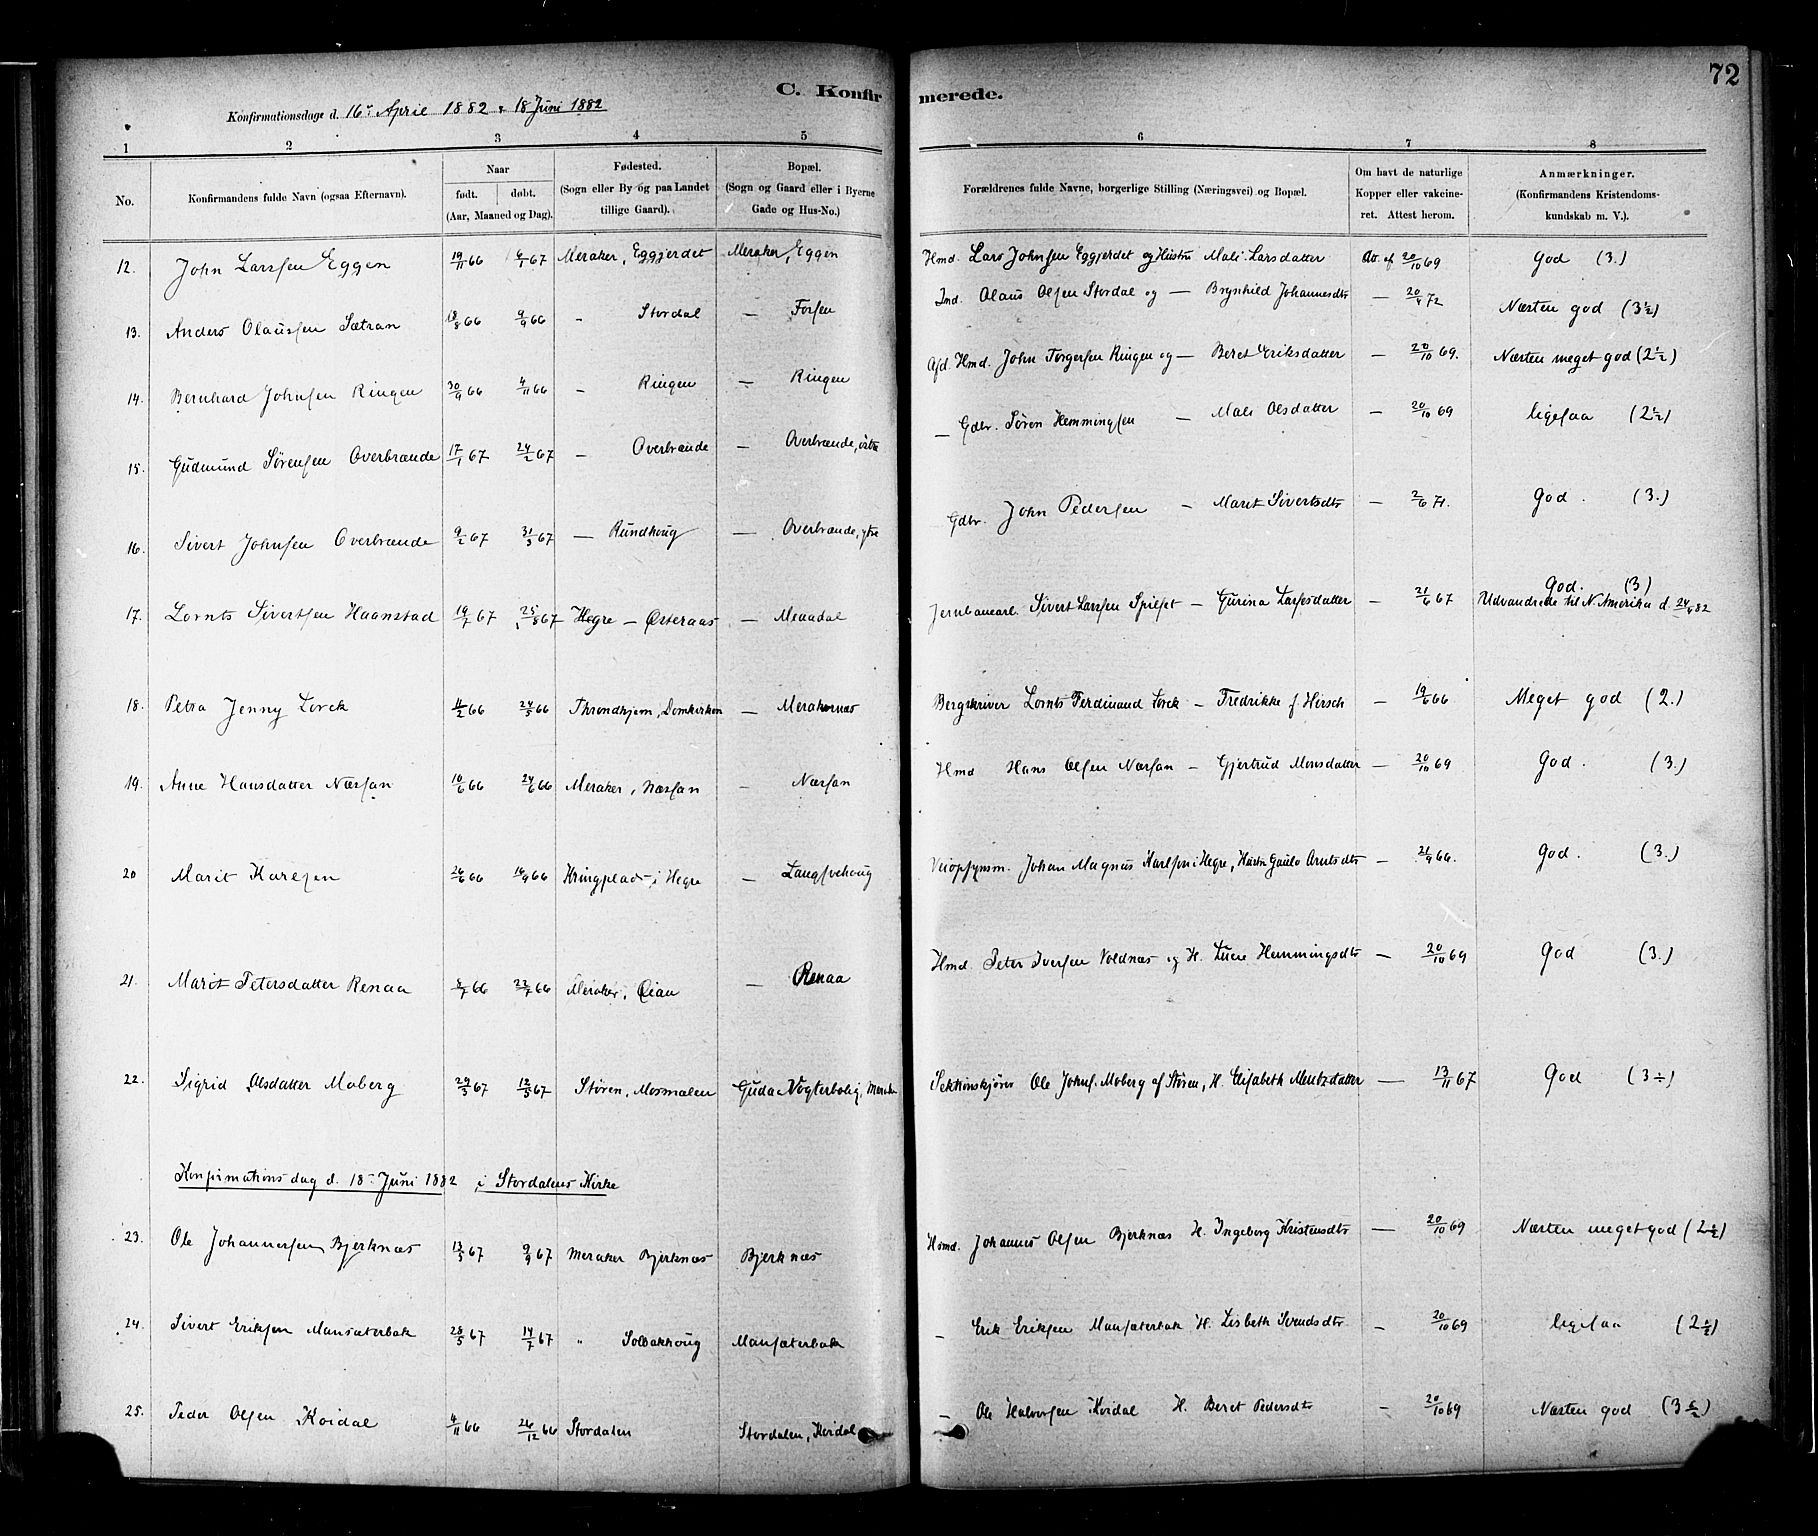 72
C. Konfirmerede.
Konfirmationsdage d. 16de April 1882 & 18 Juni 1882
1 2 3 4 5 6 7 8
No. Konfirmandens fulde Navn (ogsaa Efternavn). Naar født. døbt. (Aar, Maaned og Dag). Fødested. (Sogn eller By og paa Landet tillige Gaard). Bopæl. (Sogn og Gaard eller i Byerne Gade og Hus-No.) Forældrenes fulde Navne, borgerlige Stilling (Næringsvei) og Bopæl. Om havt de naturlige Kopper eller vakcineret. Attest herom. Anmærkninger. (Konfirmandens Kristendomskundskab m. V.).
12. John Larssen Eggen 19/11 66 6/1 67 Meraker, Eggjerdet Meraker, Eggen Hmd. Lars Johnsen Eggjerdet og Hustru Mali Larsdatter Av. af 20/10 69 God (3.)
13. Anders Olaussen Sætran 18/8 66 9/9 66 " Stordal — Forsen Ind. Olaus Olsen Stordal og — Brynhild Johannesdtr — 20/4 72 Næsten god (3½)
14. Bernhard Johnsen Ringen 30/9 66 4/11 66 — Ringen — Ringen Afd. Hmd. John Torgersen Ringen og — Beret Eriksdatter — 20/10 69. Næsten meget god (2½)
15. Gudmund Sørensen Overbrænde 17/1 67 24/2 67 — Overbrænde — Overbrænde, østre — Gdbr. Søren Hemmingsen — Mali Olsdatter — 20/10 69 ligesaa (2½)
16. Sivert Johnsen Overbrænde 9/2 67 31/3 67 — Rundhoug — Overbrænde, ytre Gdbr. John Pedersen — Marit Sivertsdtr — 2/6 71. God. (3.)
17. Lornts Sivertsen Haanstad 19/7 67 25/8 67 Hegre — Østeraas — Meraadal Jernbanearb. Sivert Larssen Spilset — Gurina Larssdatter — 21/6 67 God. (3) Udvandrede til N. Amerika d. 24/4 82
18. Petra Jenny Lorck 11/2 66 24/5 66 Throndhjem, Domkirken — Merakernæs Bergskriver Lornts Ferdinand Lorck — Fredrikke f. Hirsch — 19/6 66 Meget god (2.)
19. Anne Hansdatter Næssan 10/6 66 24/6 66 Meraker, Næssan — Næssan Hmd Hans Olsen Næssan — Gjertrud Monsdatter — 20/10 69 God. (3.)
20 Marit Karlsen 26/6 66 16/9 66 Kringplads i Hegre — Langsvehoug Veiopsynsm. Johan Magnus Karlson i Hegre, Hustru Gaulo Arntsdtr — 21/9 66. God. (3.)
21. Marit Petersdatter Renaa 5/7 66 22/7 66 Meraker, Oian — Renaa Hmd. Peter Iversen Voldnæs og H. Lucie Hemmingsdtr — 20/10 69 God (3.)
22. Sigrid Olsdatter Moberg 29/3 67 12/5 67 Støren, Mosmælen Guda Vogterbolig, Meraker Sektionskjører Ole Johns. Moberg af Støren, H. Elisabeth Mentzdatter — 13/11 67 God (3÷)
Konfirmationsdag d. 18de Juni 1882 i Stordalens Kirke
23. Ole Johannessen Bjerknæs 13/5 67 9/9 67 Meraker Bjerknæs Bjerknæs Hsmd. Johannes Olsen Bjerknæs H. Ingeborg Kristensdtr — 20/10 69 Næsten meget god (2½)
24. Sivert Eriksen Mansæterbak 28/5 67 14/7 67 " Solbakhoug Mansæterbak — Erik Eriksen Mansæterbak H. Lisbeth Svendsdtr — 20/10 69 ligesaa (2½)
25. Peder Olsen Kvidal 4/11 66 26/12 66 Stordalen Stordalen, Kvidal — Ole Halvorsen Kvidal H. Beret Pedersdtr — 20/10 69 Næsten god (3½)